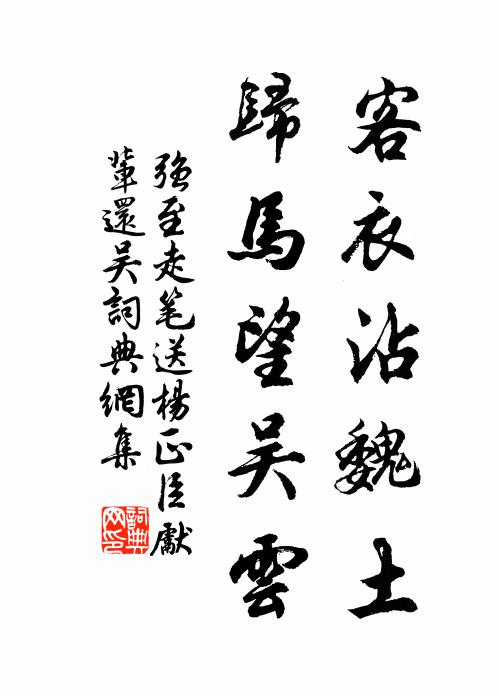 客衣沾魏土
歸馬望吳雲
強至走笔送楊正臣獻
輩還吳詞典網集
詞典
网印